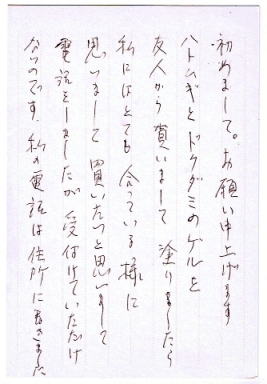 初めまして。お願い申上げます
ハトムギとドクダミのゲルを
友人から貰いまして塗りましたら
私にはとても合っている様に
思いまして買いたいと思いまして
電話をしましたが受付けていただけ
ないのです。私の電話は住所に書きました